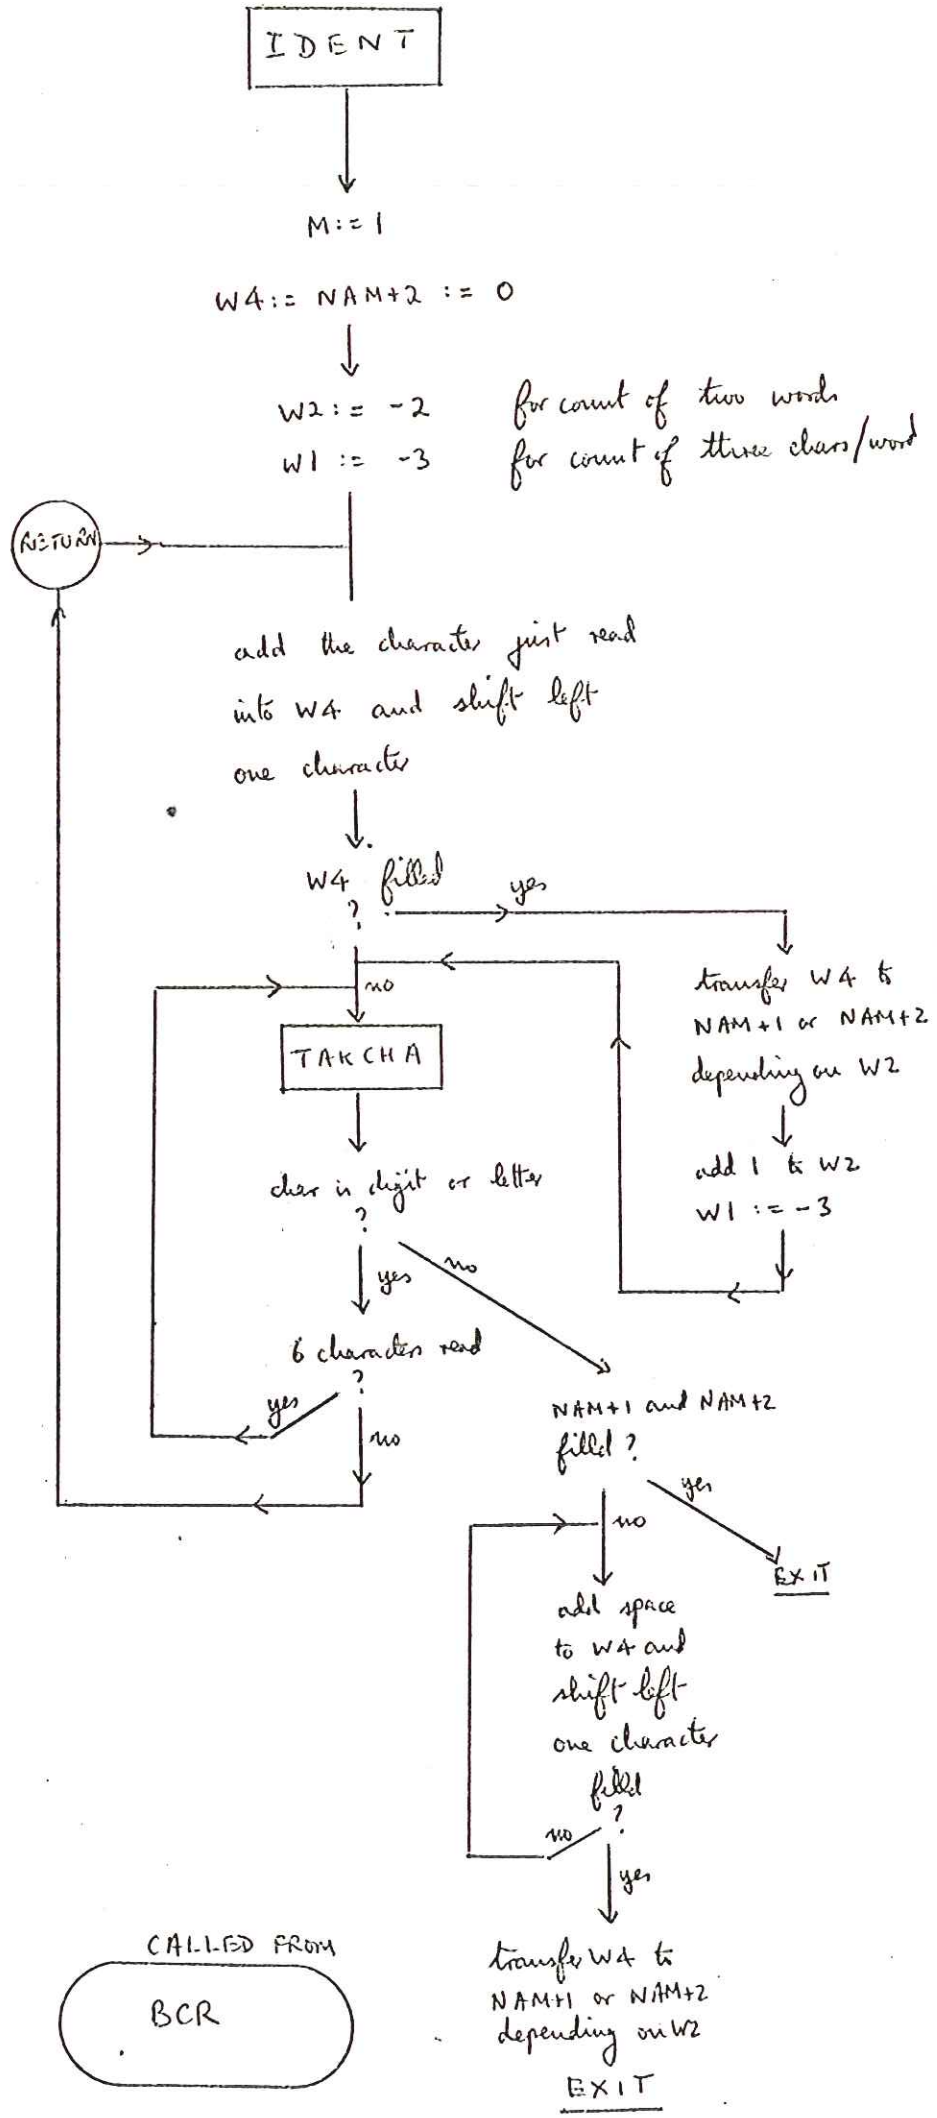 IDENT
M := 1
W4 := NAM+2 := 0
W2 := -2 for count of two words
W1 := -3 for count of three chars/word
RETURN
add the character just read
into W4 and shift left
one character
W4 filled
?
yes
no
transfer W4 to
NAM+1 or NAM+2
depending on W2
add 1 to W2
W1 := -3
TAKCHA
char is digit or letter
?
yes
no
6 characters read
?
yes
no
NAM+1 and NAM+2
filled?
yes
no
EXIT
add space
to W4 and
shift left
one character
filled
?
no
yes
transfer W4 to
NAM+1 or NAM+2
depending on W2
EXIT
CALLED FROM
BCR